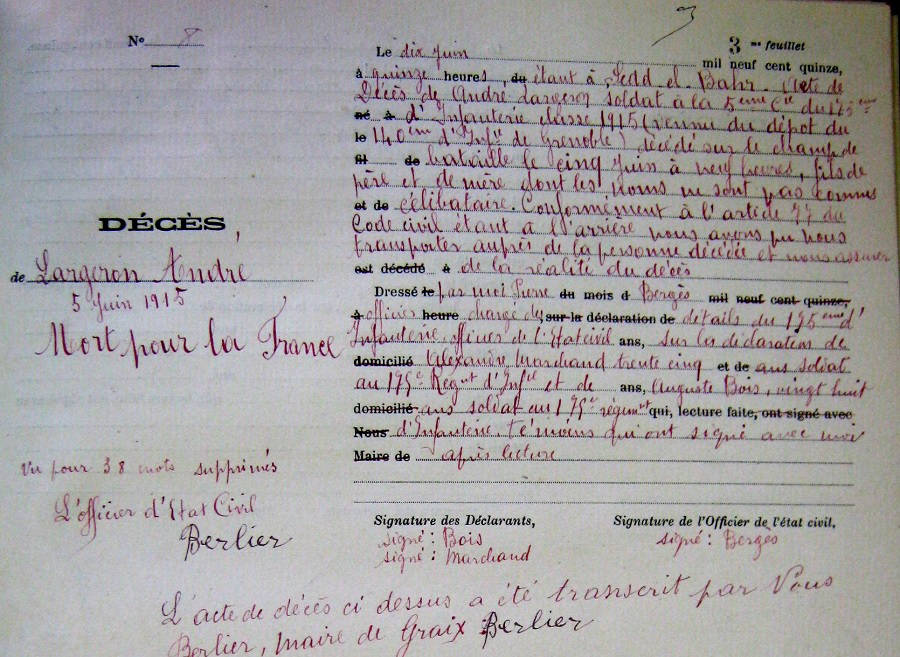 3
3 me feuillet
N° 8
Le dix juin mil neuf cent quinze,
à quinze heures, du étant à Sedd el Bahr. Acte de
Décès de André Largeron soldat à la 5eme Cie du 175eme
né à d'Infanterie classe 1915 (venu du dépot du
le 140em d'Infie de Grenoble) décédé sur le champ de
fil de bataille le cinq juin à neuf heures, fils de
père et de mère dont les noms ne sont pas connus
et de célibataire. Conformément à l'article 77 du
Code civil étant à l'arrière nous avons pu nous
transporter auprès de la personne décédée et nous assurer
est décédé à de la réalité du décès
Dressé le par moi Pierre du mois d Bergès mil neuf cent quinze,
à officier heure chargé des sur la déclaration de détails du 175eme d'
Infanterie, officier de l'Etat civil ans, sur la déclaration de
domicilié Alexandre Marchand trente cinq et de ans soldat
au 175e Régnt d'Infie et de ans, Auguste Bois, vingt huit
domicilié ans soldat au 175e régiment qui, lecture faite, ont signé avec
Nous d'Infanterie. témoins qui ont signé avec moi
Maire de après lecture
DÉCÈS
de Largeron André
5 Juin 1915
Mort pour la France
Vu pour 38 mots supprimés
L'officier d'Etat Civil
Berlier
Signature des Déclarants,
signé : Bois
signé : Marchand
Signature de l'Officier de l'état civil,
signé : Bergès
L'acte de décès ci dessus a été transcrit par Nous
Berlier, maire de Graix Berlier